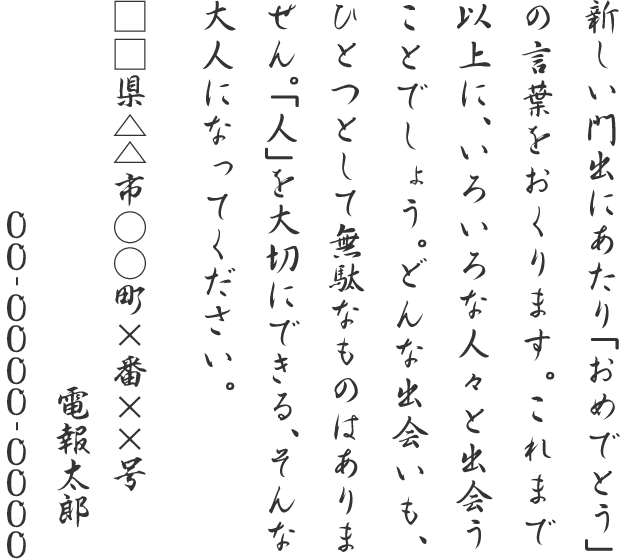 新しい門出にあたり「おめでとう」
の言葉をおくります。これまで
以上に、いろいろな人々と出会う
ことでしょう。どんな出会いも、
ひとつとして無駄なものはありま
せん。「人」を大切にできる、そんな
大人になってください。
□□県△△市○○町×番××号
電報太郎
00-0000-0000